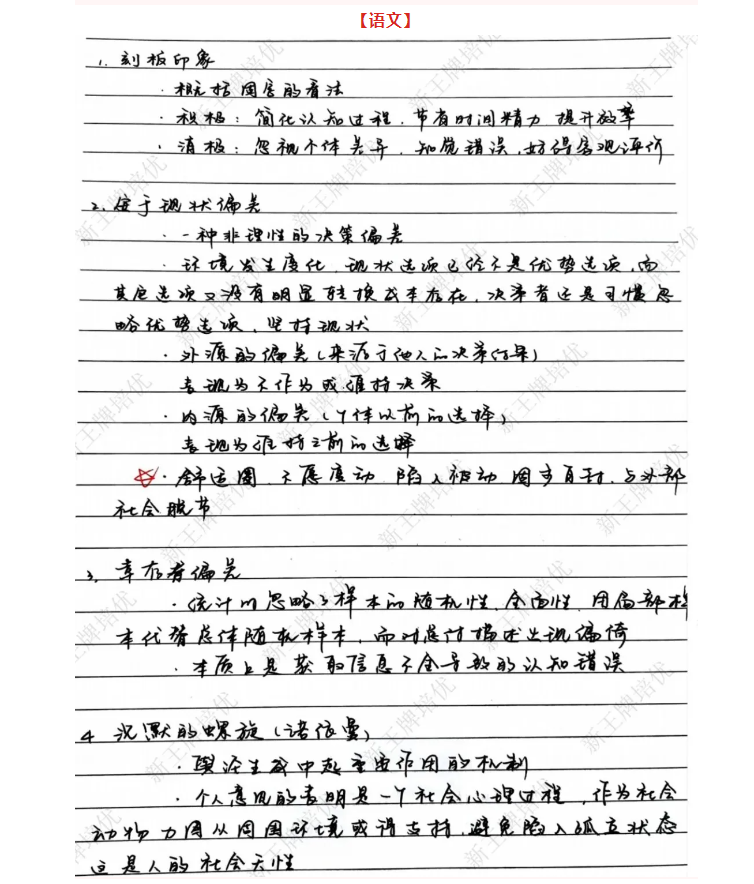 【语文】
1. 刻板印象
· 概括固定的看法
· 积极：简化认知过程，节省时间精力 提升效率
· 消极：忽视个体差异，知觉错误，妨碍客观评价
2. 安于现状偏差
· 一种非理性的决策偏差
· 环境发生变化，现状选项已经不是优势选项，而
其他选项又没有明显转换成本存在，决策者还是习惯忽
略优势选项，坚持现状
· 外源的偏差（来源于他人的决策结果）
表现为不作为或维持决策
· 内源的偏差（个体以前的选择）
表现为维持之前的选择
☆· 舒适圈，不愿变动，陷入被动，固步自封，与外部
社会脱节
3. 幸存者偏差
· 统计时忽略了样本的随机性，全面性，用局部样
本代替总体随机样本，而对总体描述出现偏倚
· 本质上是获取信息不全导致的认知错误
4 沉默的螺旋（诺依曼）
· 舆论生成中起重要作用的机制
· 个人意见的表明是一个社会心理过程，作为社会
动物力图从周围环境或得支持，避免陷入孤立状态
这是人的社会天性
新王牌培优